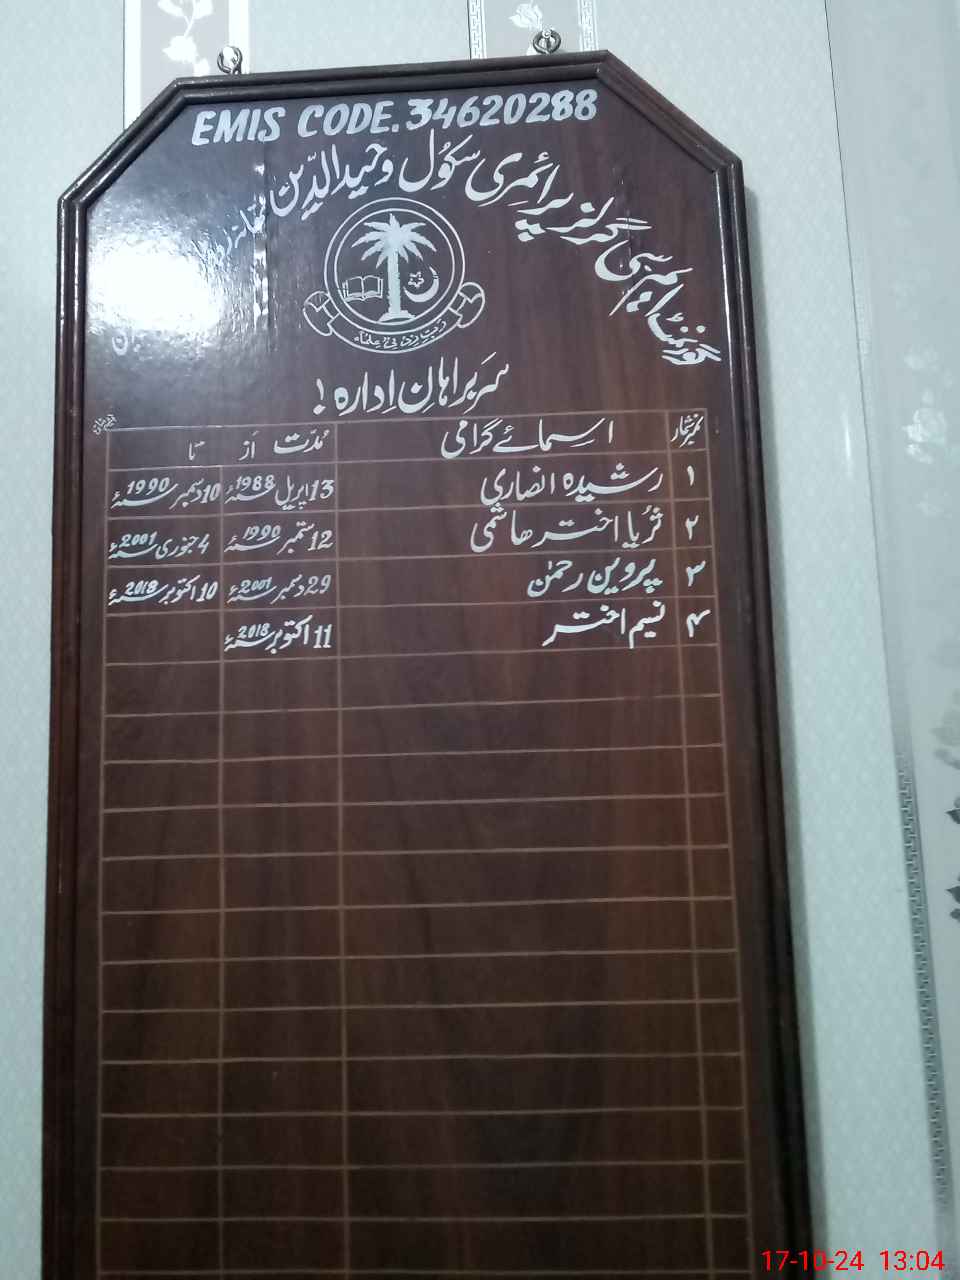 EMIS CODE.34620288
گورنمنٹ ایم سی گرلز پرائمری سکول وحیدالدین
رب زدنی علما
سربراہان ادارہ !
نمبر شمار اسمائے گرامی مدت از تا
۱ رشیدہ انصاری 13 اپریل 1988ء 10 دسمبر 1990ء
۲ ثریا اختر ہاشمی 12 ستمبر 1990ء 4 جنوری 2001ء
۳ پروین رحمن 29 دسمبر 2001ء 10 اکتوبر 2018ء
۴ نسیم اختر 11 اکتوبر 2018ء
17-10-24 13:04